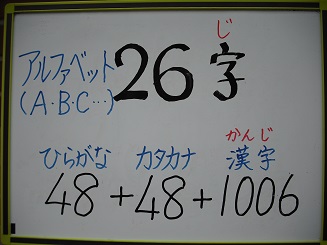 じ
アルファベット 26字
(A・B・C…)
かんじ
ひらがな カタカナ 漢字
48+48+1006